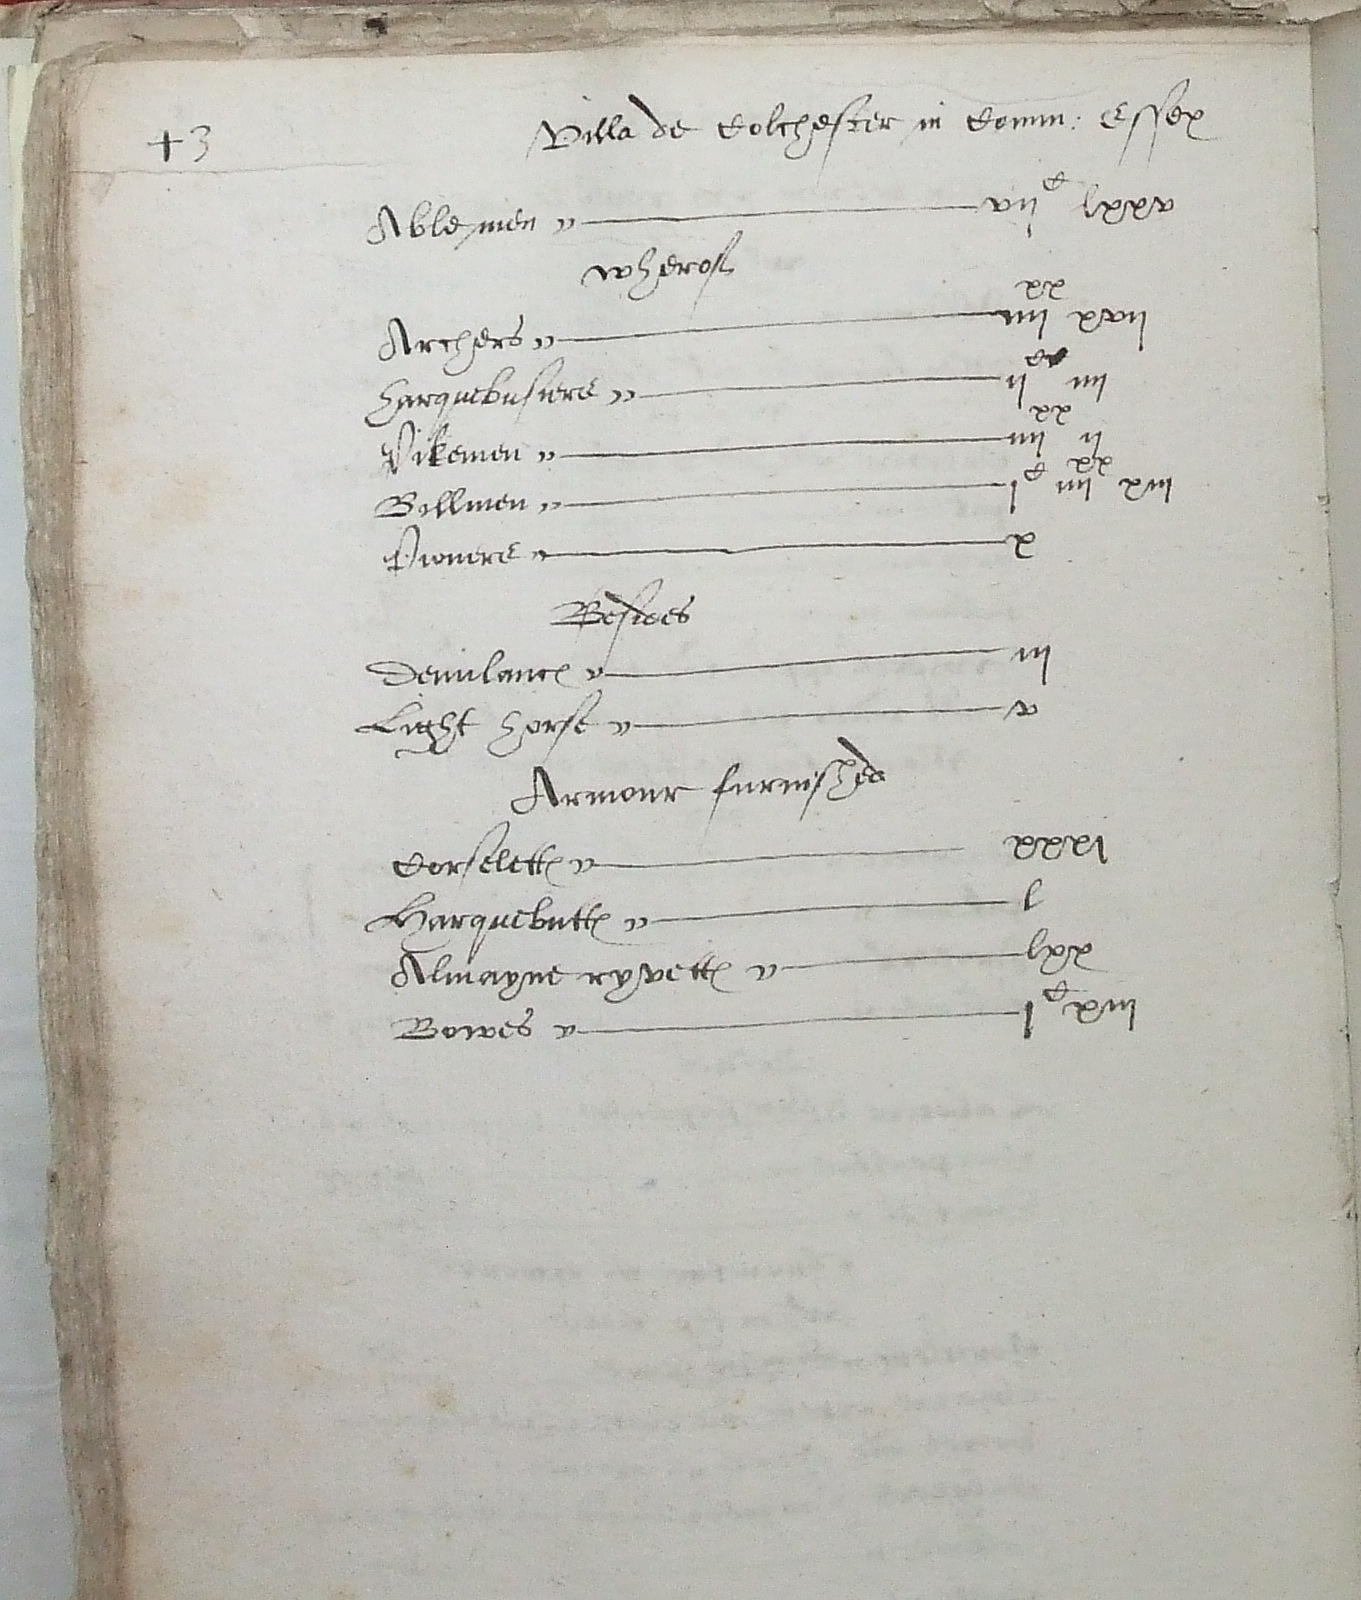 +3
Villa de Colchester in Comm: Essex
Able men vii^c lxxv
wherof
Archers iiii^xx xvii
Harquebusiers ii^c iiii
Pikemen iiii^xx ii
Billmen i^c iiii^xx xiii
Pioners x
Besides
Demilances iii
Light horse v
Armour furnished
Corselettes xxxi
Harquebuttes l
Almayne ryvettes lxx
Bowes i^c xiii